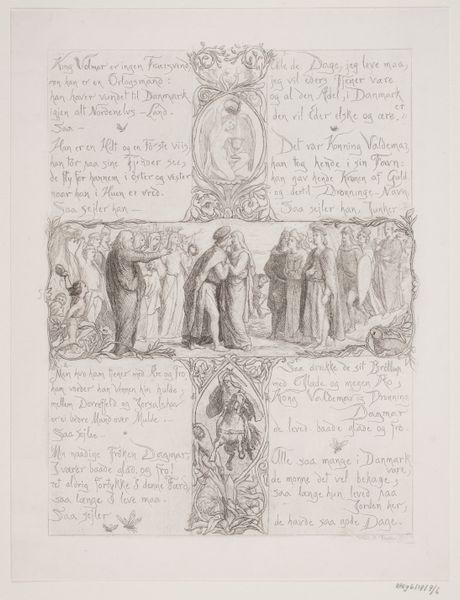 King Volmar er ingen
men han er en Orlogsmand:
han haver vundet til Danmark
igien alt Nordenelvs-Land.
Saa —
Han er en Helt og en Første viis,
han tør saa sine Fiender see,
de fly for hannem i øster og vester
naar han i Huen er vred.
Saa sejler han —
Men hvo ham tiener med Ære og tro
ham vorder han Vennen fuld,
mellem Dovrefield og
er ei bedre Mand over Mulde.
Saa sejler —
Min naadige Frøken Dagmar,
I værer baade glad og fro!
ret aldrig fortykke I denne Færd
saa længe I leve maa.
Saa sejler
Alle de Dage, jeg leve maa,
jeg vil eders Tjener være
og al den Adel, i Danmark er
den vil Eder elske og ære.
Det var Konning Valdemar,
han tog hende i sin Favn:
han gav hende Kronen af Guld
og dertil Dronninge-Navn.
Saa sejler han, Junker
Saa drukke de sit Bröllup
med Glæde og megen Ro,
Kong Valdemar og Dronning
Dagmar
de leved baade glade og fro.
Alle saa mange i Danmark
vare,
de monne det vel behage,
saa længe hun leved paa
Jorden her,
de havde saa gode Dage.